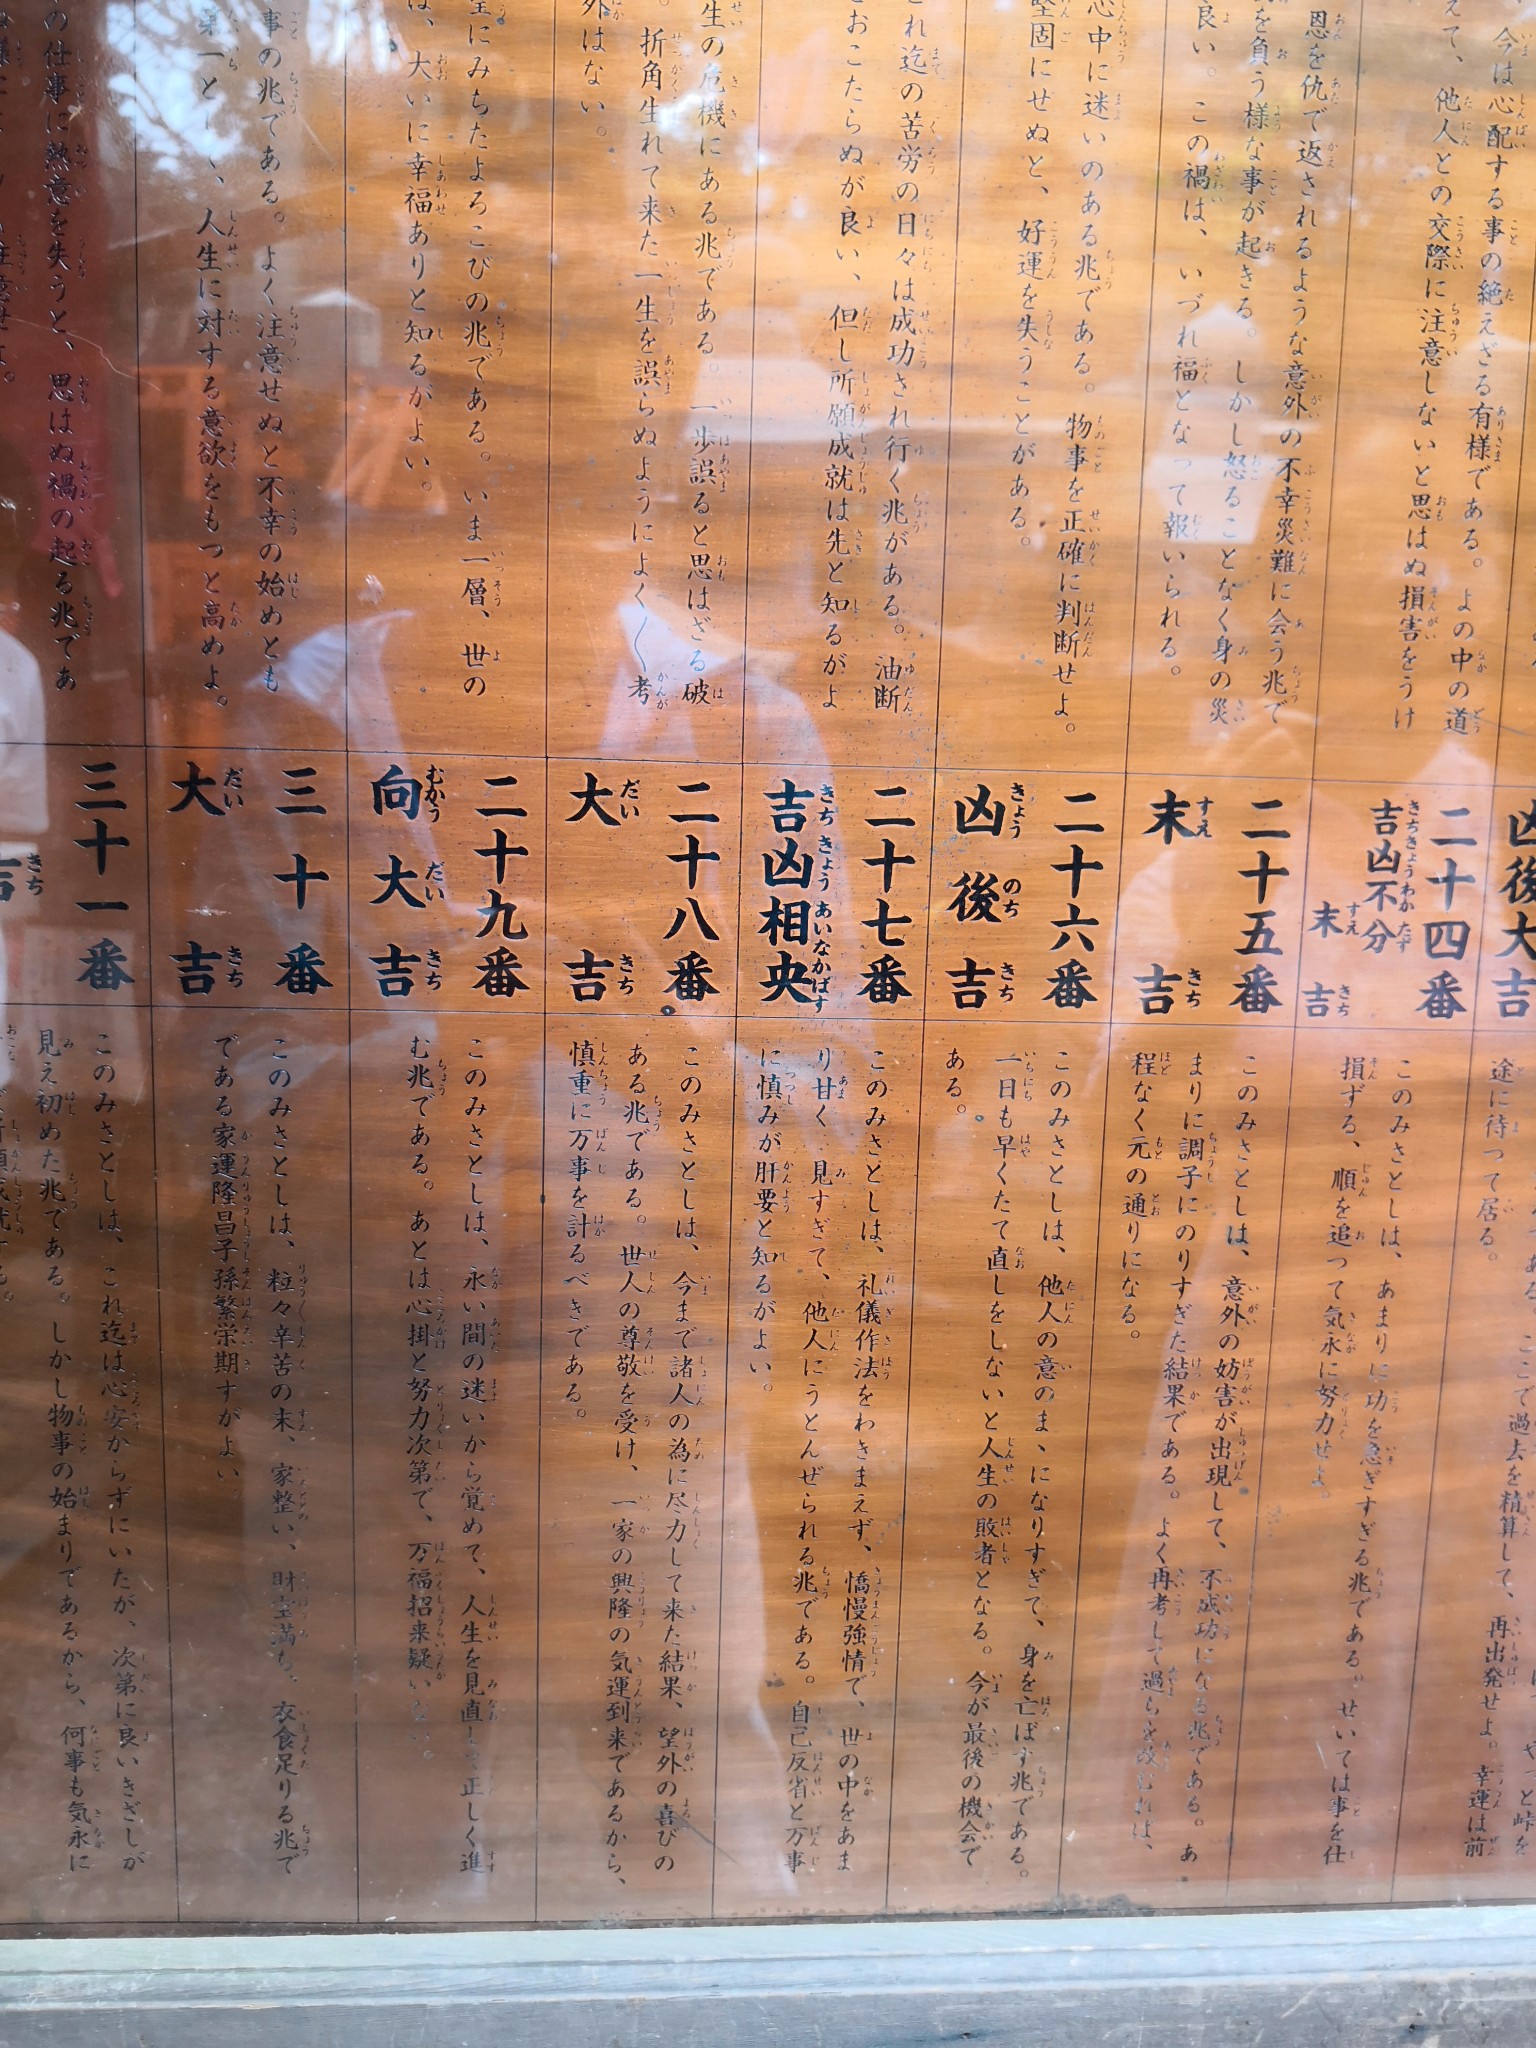 今は心配する事の絶えざる有様である。よの中の道
えて、他人との交際に注意しないと思はぬ損害をうけ
恩を仇で返されるような意外の不幸災難に会う兆で
を負う様な事が起きる。しかし怒ることなく身の災
良い。この禍は、いづれ福となって報いられる。
心中に迷いのある兆である。物事を正確に判断せよ。
堅固にせぬと、好運を失うことがある。
れ迄の苦労の日々は成功され行く兆がある。油断
おこたらぬが良い、但し所願成就は先と知るがよ
生の危機にある兆である。一歩誤ると思はざる破
。折角生れて来た一生を誤らぬようによく〱考
外はない。
にみちたよろこびの兆である。いま一層、世の
は、大いに幸福ありと知るがよい。
事の兆である。よく注意せぬと不幸の始めとも
第一と 、人生に対する意欲をもっと高めよ。
の仕事に熱意を失うと、思はぬ禍の起る兆であ
凶後大吉
二十四番
吉凶不分
末吉
二十五番
末吉
二十六番
凶後吉
二十七番
吉凶相央
二十八番
大吉
二十九番
向大吉
三十番
大吉
三十一番
吉
ここで過去を精算して、再出発せよ。幸運は前
途に待って居る。
このみさとしは、あまりに功を急ぎすぎる兆である。せいては事を仕
損ずる、順を追って気永に努力せよ。
このみさとしは、意外の妨害が出現して、不成功になる兆である。あ
まりに調子にのりすぎた結果である。よく再考して過ちを改むれば、
程なく元の通りになる。
このみさとしは、他人の意のまゝになりすぎて、身を亡ぼす兆である。
一日も早くたて直しをしないと人生の敗者となる。今が最後の機会で
ある。
このみさとしは、礼儀作法をわきまえず、憍慢強情で、世の中をあま
り甘く見すぎて、他人にうとんぜられる兆である。自己反省と万事
に慎みが肝要と知るがよい。
このみさとしは、今まで諸人の為に尽力して来た結果、望外の喜びの
ある兆である。世人の尊敬を受け、一家の興隆の気運到来であるから、
慎重に万事を計るべきである。
このみさとしは、永い間の迷いから覚めて、人生を見直して正しく進
む兆である。あとは心掛と努力次第で、万福招来疑いない。
このみさとしは、粒々辛苦の末、家整い、財宝満ち、衣食足りる兆で
である家運隆昌子孫繁栄期すがよい
このみさとしは、これ迄は心安からずにいたが、次第に良いきざしが
見え初めた兆である。しかし物事の始まりであるから、何事も気永に